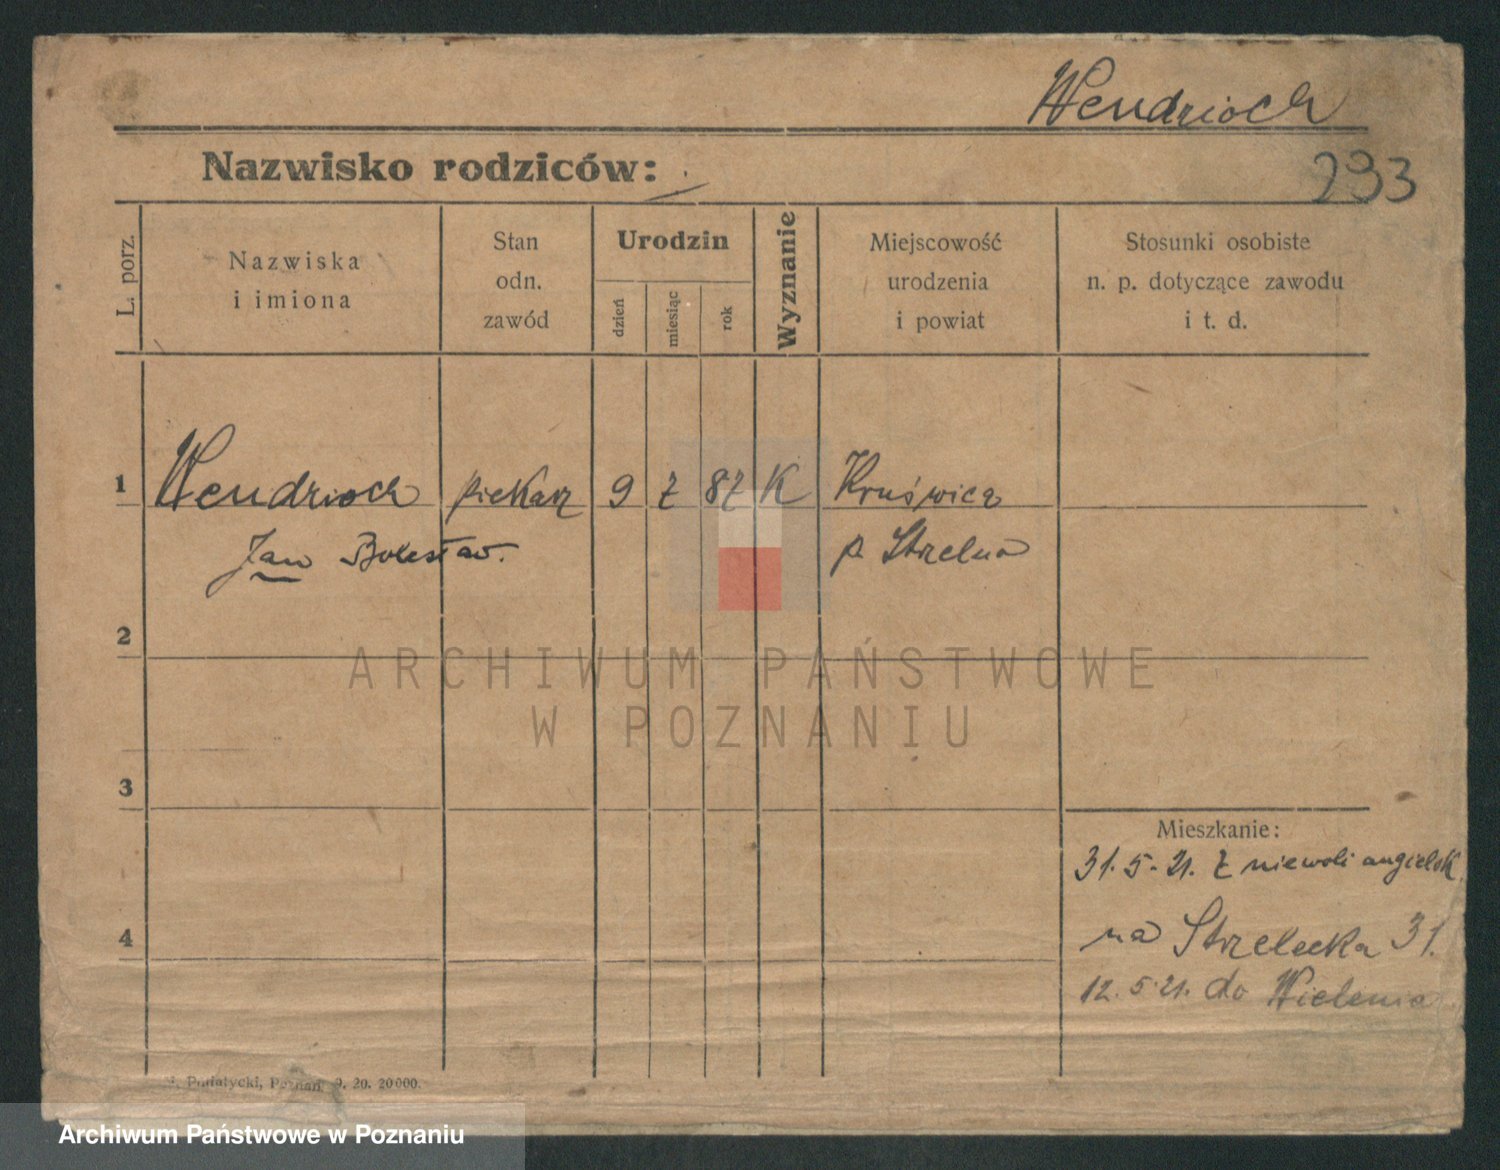 Wendrioch
Nazwisko rodziców:
293
L. porz.
Nazwiska
i imiona
Stan
odn.
zawód
Urodzin
dzień
miesiąc
rok
Wyznanie
Miejscowość
urodzenia
i powiat
Stosunki osobiste
n. p. dotyczące zawodu
i t. d.
1 Wendrioch piekarz 9 7 87 K Kruświca
Jan Bolesław. p. Strzelno
2
ARCHIWUM PAŃSTWOWE
W POZNANIU
3
Mieszkanie:
31.5.21. z niewoli angielsk.
4
na Strzelecka 31.
12.5.21. do Wielenia
Poznań, 9. 20. 20000.
Archiwum Państwowe w Poznaniu